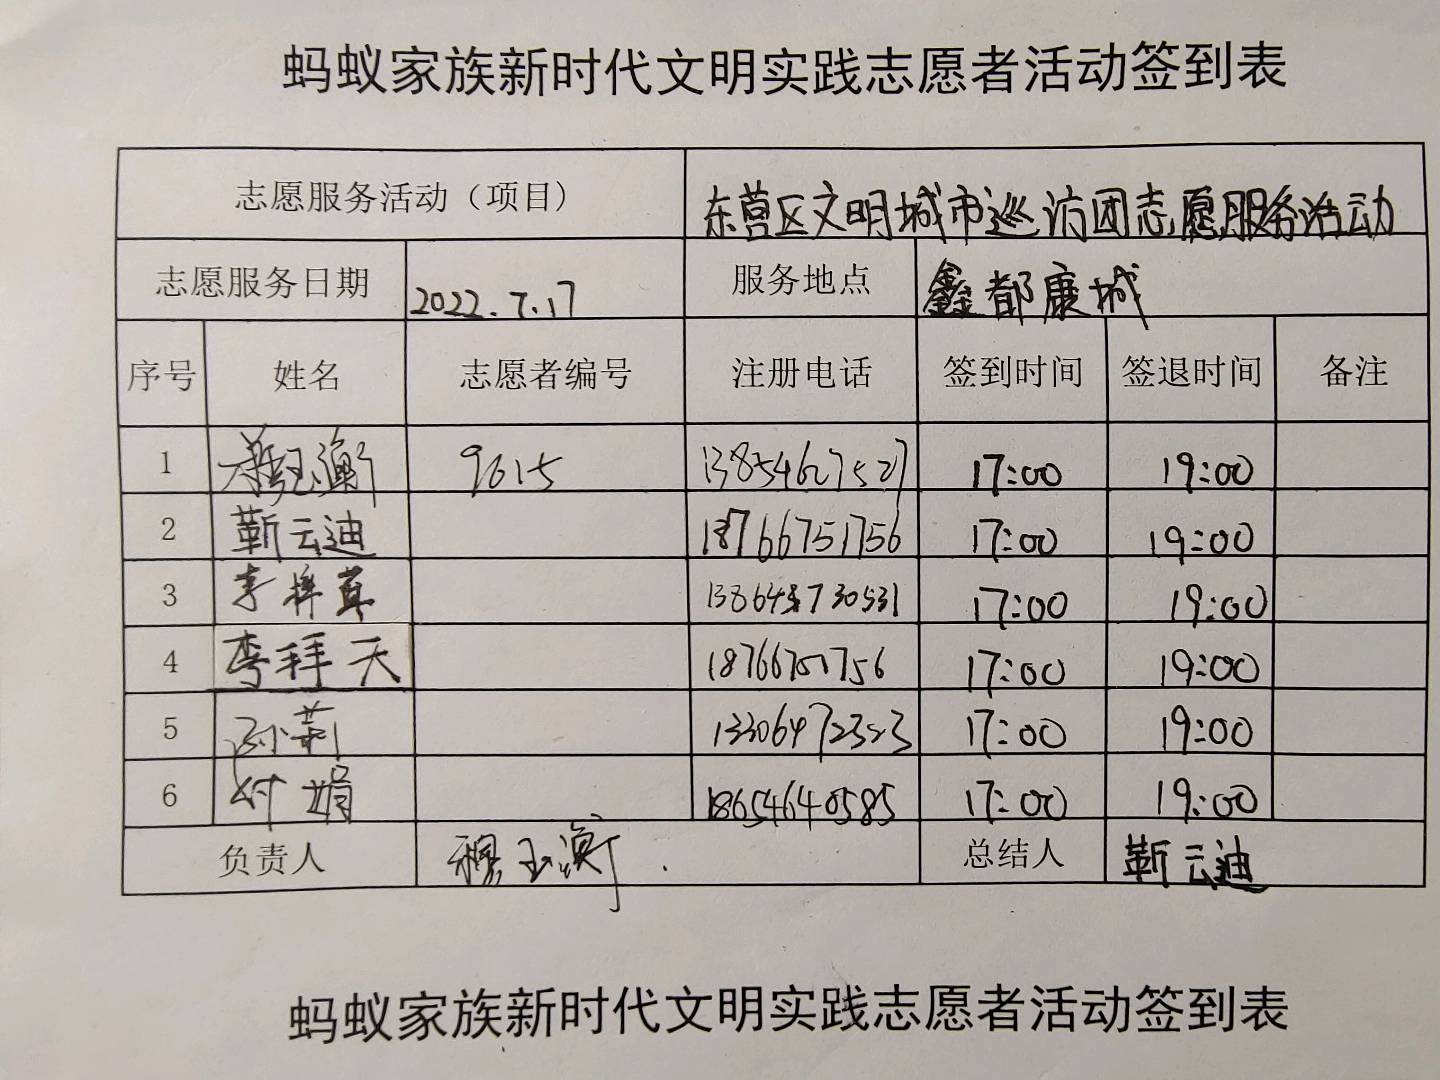 蚂蚁家族新时代文明实践志愿者活动签到表
志愿服务活动（项目） 东营区文明城市巡访团志愿服务活动
志愿服务日期 2022.7.17 服务地点 鑫都康城
序号 姓名 志愿者编号 注册电话 签到时间 签退时间 备注
1 9615 13854627527 17:00 19:00
2 靳云迪 18766751756 17:00 19:00
3 李梓萁 17:00 19:00
4 李拜天 18766751756 17:00 19:00
5 孙莉 13306472323 17:00 19:00
6 付娟 18654640585 17:00 19:00
负责人 穆玉衡 总结人 靳云迪
蚂蚁家族新时代文明实践志愿者活动签到表